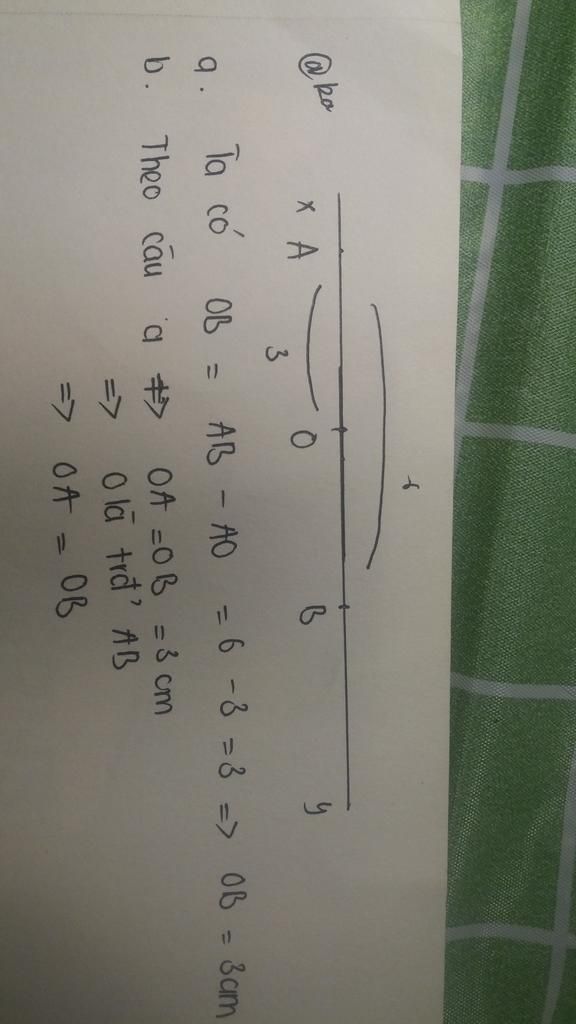 @ka
6
x A O B y
3
a. Ta có OB = AB - AO = 6 - 3 = 3 => OB = 3cm
b. Theo câu a => OA = OB = 3 cm
=> O là trđ' AB
=> OA = OB